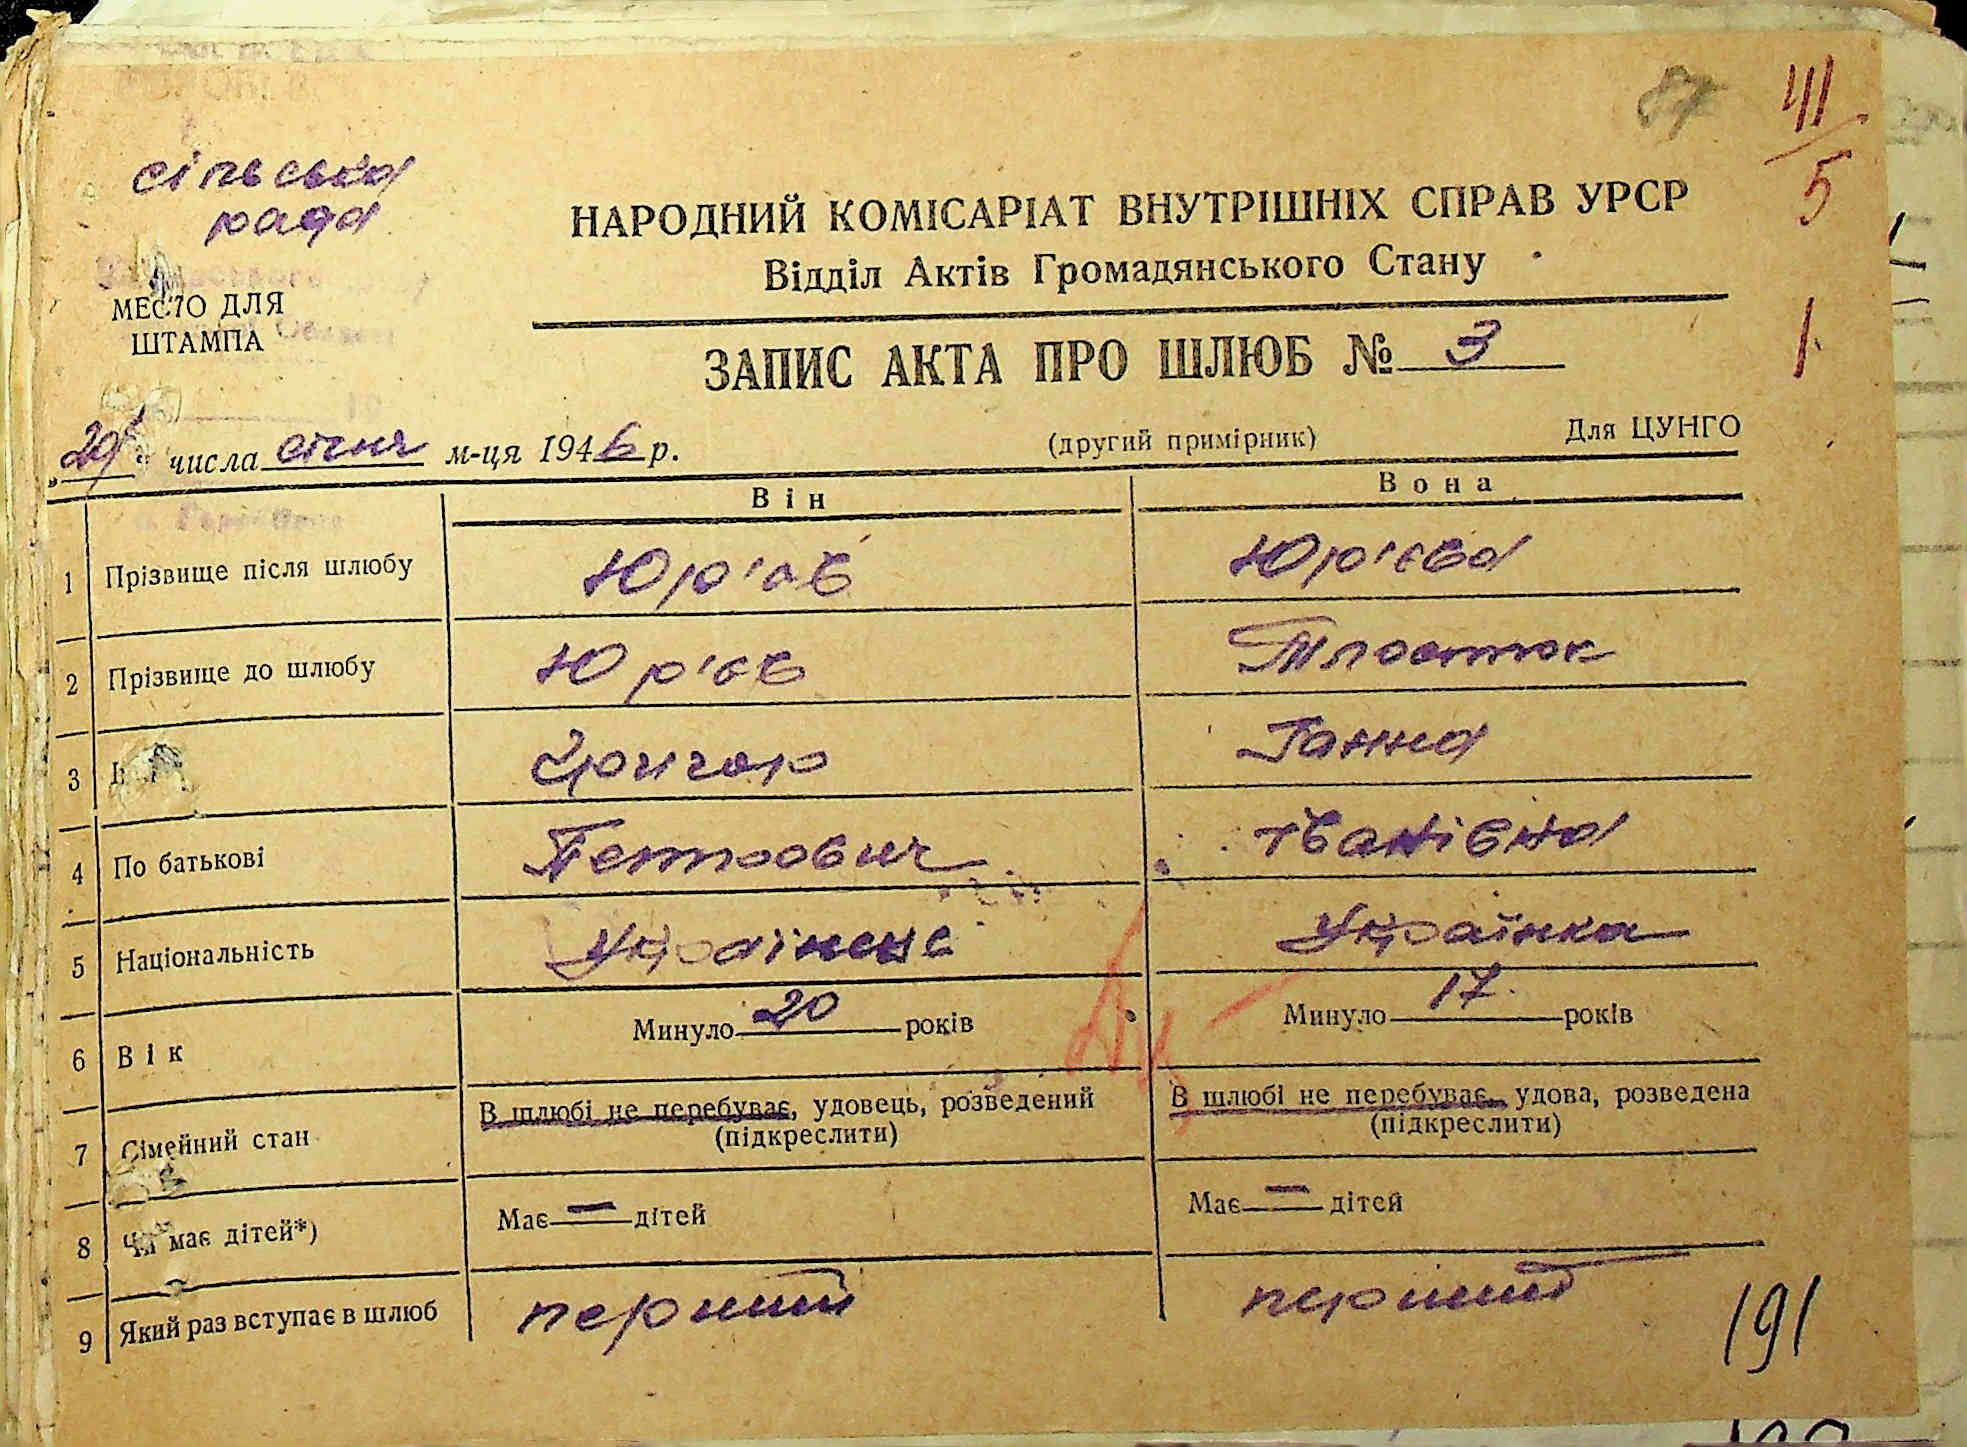 87
411
5
1
сільська
рада
НАРОДНИЙ КОМІСАРІАТ ВНУТРІШНІХ СПРАВ УРСР
Відділ Актів Громадянського Стану
МЕСТО ДЛЯ
ШТАМПА
ЗАПИС АКТА ПРО ШЛЮБ № 3
(другий примірник) Для ЦУНГО
числа січня м-ця 1946 р.
Він Вона
1 Прізвище після шлюбу Юр'єв Юр'єва
2 Прізвище до шлюбу Юр'єв
3 Ганна
4 По батькові Петрович Іванівна
5 Національність Українець Українка
6 Вік Минуло 20 років Минуло 17 років
7 Сімейний стан В шлюбі не перебуває, удовець, розведений В шлюбі не перебуває, удова, розведена
(підкреслити) (підкреслити)
8 Чи має дітей*) Має — дітей Має — дітей
9 Який раз вступає в шлюб перший перший
191